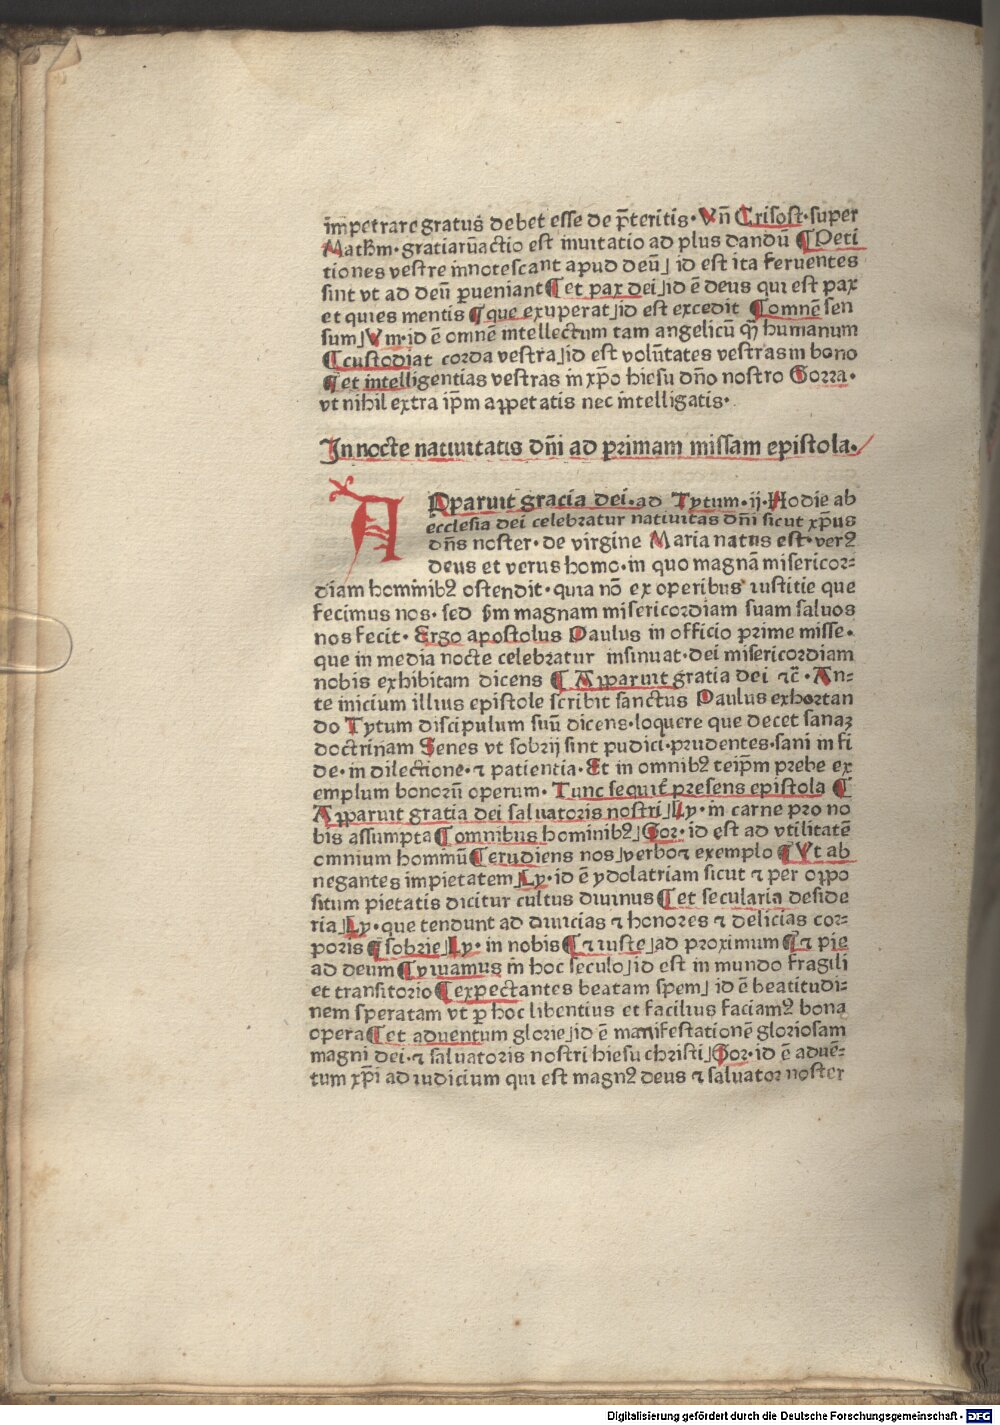 impetrare gratus debet esse de p̄teritis· Vñ Crisost· super
Mathm̄· gratiarūactio est inuitatio ad plus dandū ¶ Peti
tiones vestre innotescant apud deū⌋ id est ita feruentes
sint vt ad deū ꝑueniant ¶ et pax dei⌋ id ē deus qui est pax
et quies mentis ¶ que exuperat⌋ id est excedit ¶ omnē sen
sum⌋ Vm· id ē omnē intellectum tam angelicū qꝫ humanum
¶ custodiat corda vestra⌋ id est volūtates vestras in bono
¶ et intelligentias vestras in xp̄o hiesu dn̄o nostro Gorra·
vt nihil extra ip̄m appetatis nec intelligatis·
In nocte natiuitatis dn̄i ad primam missam epistola·
APparuit gracia dei· ad Tytum· ij· Hodie ab
ecclesia dei celebratur natiuitas dn̄i sicut xp̄us
dn̄s noster· de virgine Maria natus est· verꝰ
deus et verus homo· in quo magnā misericor⸗
diam hominibꝰ ostendit· quia nō ex operibus iustitie que
fecimus nos· sed ẜm magnam misericordiam suam saluos
nos fecit· Ergo apostolus Paulus in officio prime misse·
que in media nocte celebratur insinuat· dei misericordiam
nobis exhibitam dicens ¶ Apparuit gratia dei ⁊c̄· An⸗
te inicium illius epistole scribit sanctus Paulus exhortan
do Tytum discipulum suū dicens· loquere que decet sanaꝫ
doctrinam Senes vt sobrij sint pudici· prudentes· sani in fi
de· in dilectione· ⁊ patientia· Et in omnibꝰ teip̄m prebe ex
emplum bonorū operum· Tunc sequit̄ presens epistola ¶
Apparuit gratia dei saluatoris nostri⌋ Ly· in carne pro no
bis assumpta ¶ omnibus hominibꝰ⌋ Gor· id est ad vtilitatē
omnium hominū ¶ erudiens nos⌋ verbo ⁊ exemplo ¶ Vt ab
negantes impietatem⌋ Ly· id ē ydolatriam sicut ⁊ per oppo
situm pietatis dicitur cultus diuinus ¶ et secularia deside
ria⌋ Ly· que tendunt ad diuicias ⁊ honores ⁊ delicias cor⸗
poris ¶ sobrie⌋ Ly· in nobis ¶ ⁊ iuste⌋ ad proximum ¶ ⁊ pie
ad deum ¶ viuamus in hoc seculo⌋ id est in mundo fragili
et transitorio ¶ expectantes beatam spem⌋ id ē beatitudi⸗
nem speratam vt ꝑ hoc libentius et facilius faciamꝰ bona
opera ¶ et aduentum glorie⌋ id ē manifestationē gloriosam
magni dei· ⁊ saluatoris nostri hiesu christi⌋ Gor· id ē aduē⸗
tum xp̄i ad iudicium qui est magnꝰ deus ⁊ saluator noster
Digitalisierung gefördert durch die Deutsche Forschungsgemeinschaft - DFG